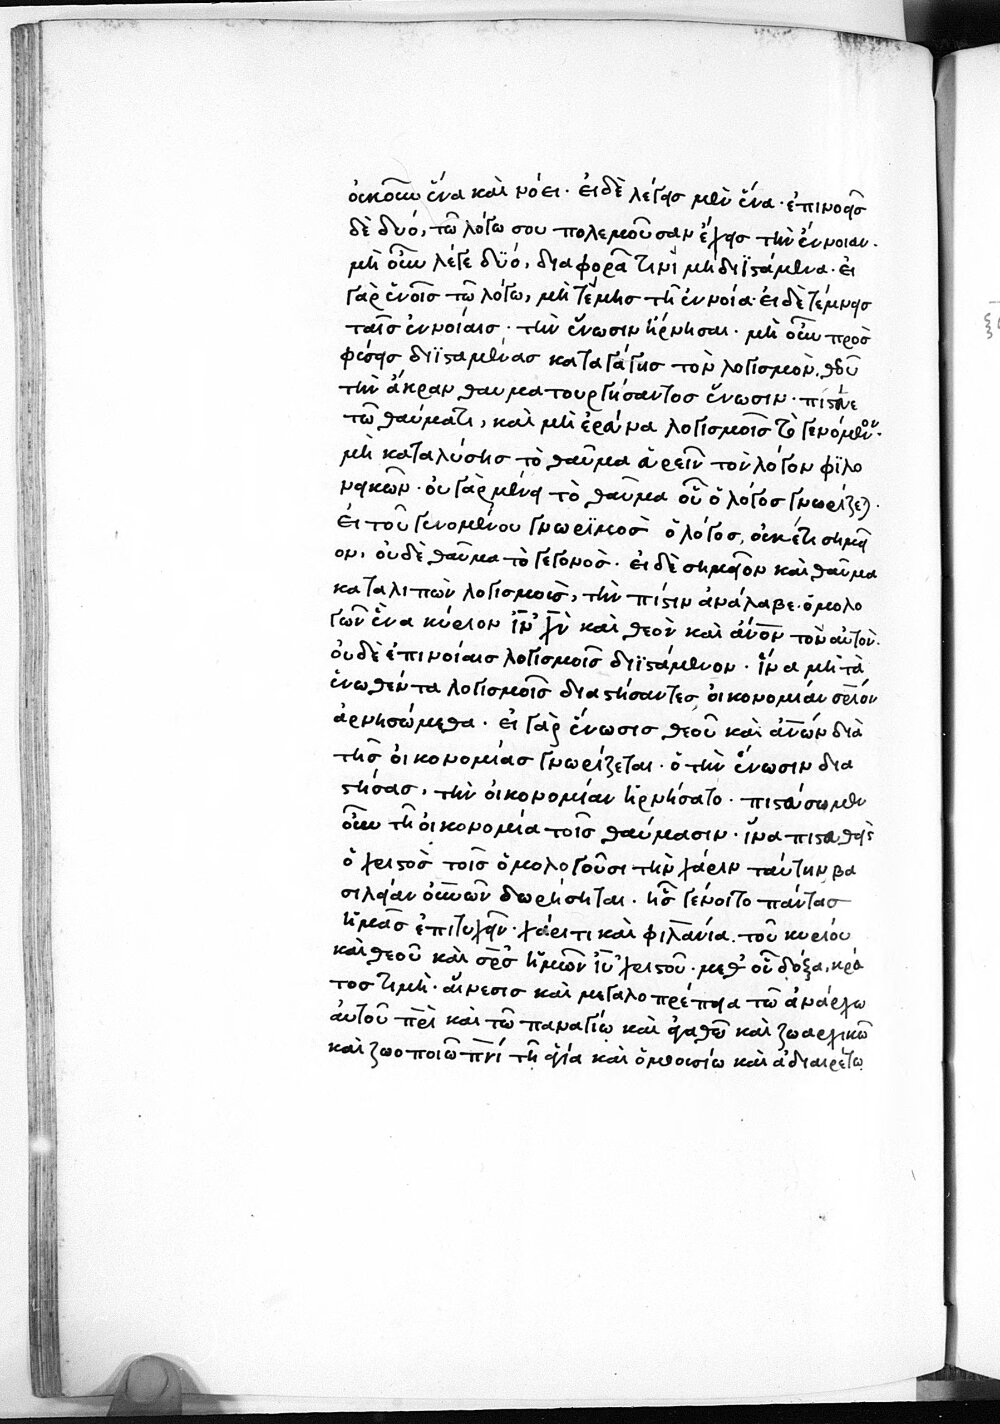 οὐκοῦν ἕνα καὶ νόει· εἰ δὲ λέγεις μὲν ἕνα· ἐπινοεῖς
δὲ δυό, τῶ λόγω σου πολεμοῦσαν ἔχεις τὴν ἔννοιαν·
μὴ οὖν λέγε δϋό, διαφορᾶ τινὶ μὴ διϊστάμενα· εἰ
γὰρ ἑνοῖς τῶ λόγω, μὴ τέμνης τῆ ἐννοία· εἰ δὲ τέμνεις
ταῖς ἐννοίαις· τὴν ἕνωσιν ἤρνησαι· μὴ οὖν πρὸς
φύσεις διϊσταμένας καταγάγης τὸν λογισμὸν, θεοῦ
τὴν ἄκραν θαυματουργήσαντος ἕνωσιν· πίστευε
τῶ θαύματι, καὶ μὴ ἐρεύνα λογισμοῖς τὸ γενόμενον·
μὴ καταλύσης τὸ θαῦμα εὑρεῖν τὸν λόγον φϊλο
νεικῶν· οὐ γὰρ μένει τὸ θαῦμα οὗ ὁ λόγος γνωρίζεται·
εἰ τοῦ γενομένου γνωρϊμος ὁ λόγος, οὐκέτι σημεῖ
ον, οὐδὲ θαῦμα τὸ γεγονός· εἰ δὲ σημεῖον καὶ θαῦμα
καταλιπὼν λογισμοῖς, τὴν πίστιν ἀνάλαβε· ὁμολο
γῶν ἕνα κύριον ἰν χν καὶ θεὸν καὶ ἄνον τὸν αὐτὸν·
οὐδὲ ἐπινοίαις λογισμοῖς διϊστάμενον· ἵνα μὴ τὰ
ἑνωθέντα λογισμοῖς διαστήσαντες, οἰκονομίαν σριον
ἀρνησώμεθα· εἰ γὰρ ἕνωσις θεοῦ καὶ ἀνων διὰ
τῆς οἰκονομίας γνωρίζεται· ὁ τὴν ἕνωσιν δια
στήσας, τὴν οἰκονομίαν ἠρνήσατο· πιστεύσωμεν
οὖν τῆ οἰκονομία τοῖς θαύμασιν· ἵνα πιστευθεὶς
ὁ χριστὸς τοῖς ὁμολογοῦσι τὴν χάριν ταύτην βα
σιλείαν οὐνῶν δωρήσηται· ἧς γένοιτο πάντας
ἡμᾶς ἐπιτυχεῖν· χάριτι καὶ φιλανία. τοῦ κυρίου
καὶ θεοῦ καὶ σρς ἡμῶν ἰυ χριστοῦ· μεθ' οὗ δόξα, κρά
τος τιμὴ· αἴνεσις καὶ μεγαλοπρέπεια τῶ ἀνάρχω
αὐτοῦ πρὶ καὶ τῶ παναγίω καὶ ἀγαθῶ καὶ ζωαρχικῶ
καὶ ζωοποιῶ πνί τῆ ἁγία καὶ ὁμοουσίω καὶ ἀδιαιρέτω